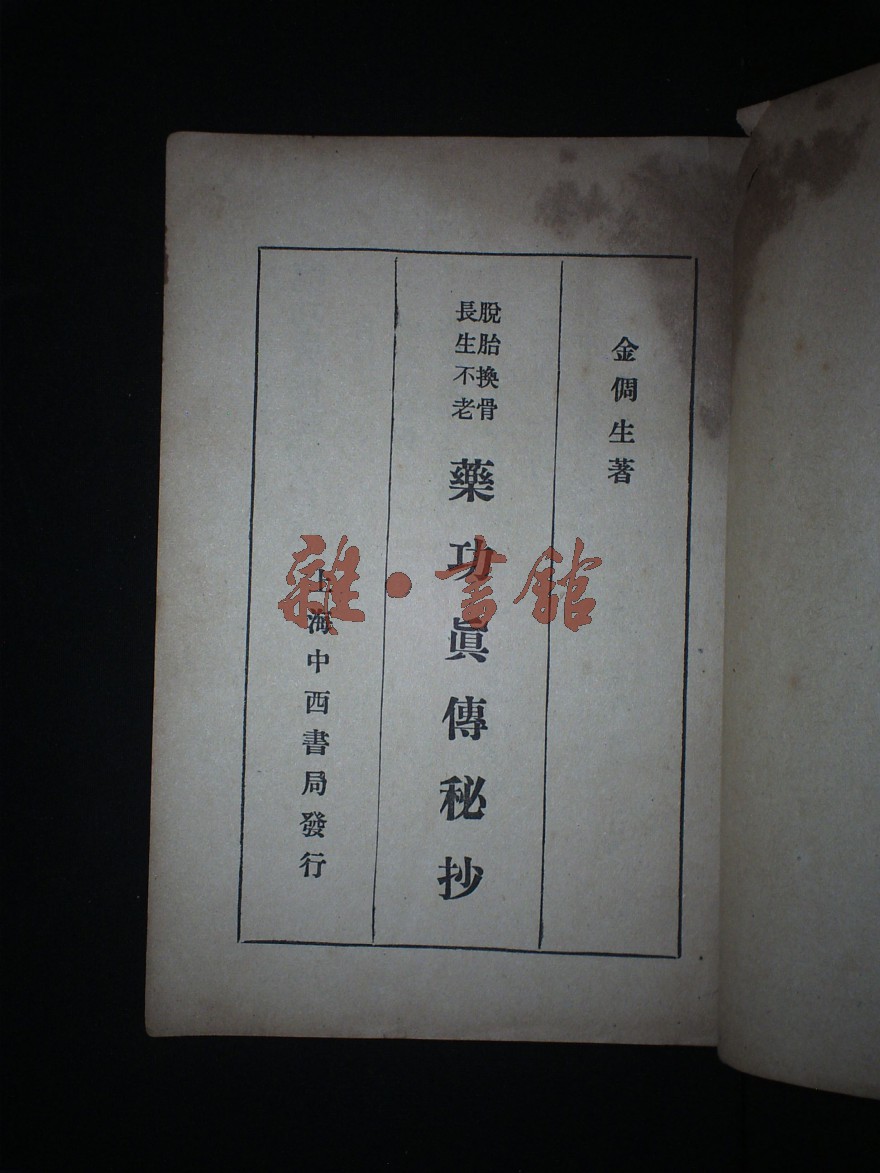 金倜生著
脫胎換骨
長生不老
藥功眞傳秘抄
上海中西書局發行
雜·書館